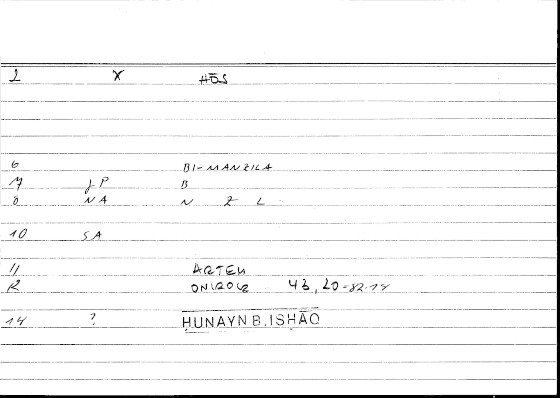 1 X HŌS
6 BI-MANZILA
7 JP B
8 NA N Z L
10 SA
11 ARTEM
12 ONIROCR 43,20=82.14
14 ? ḤUNAYN B. ISḤĀQ